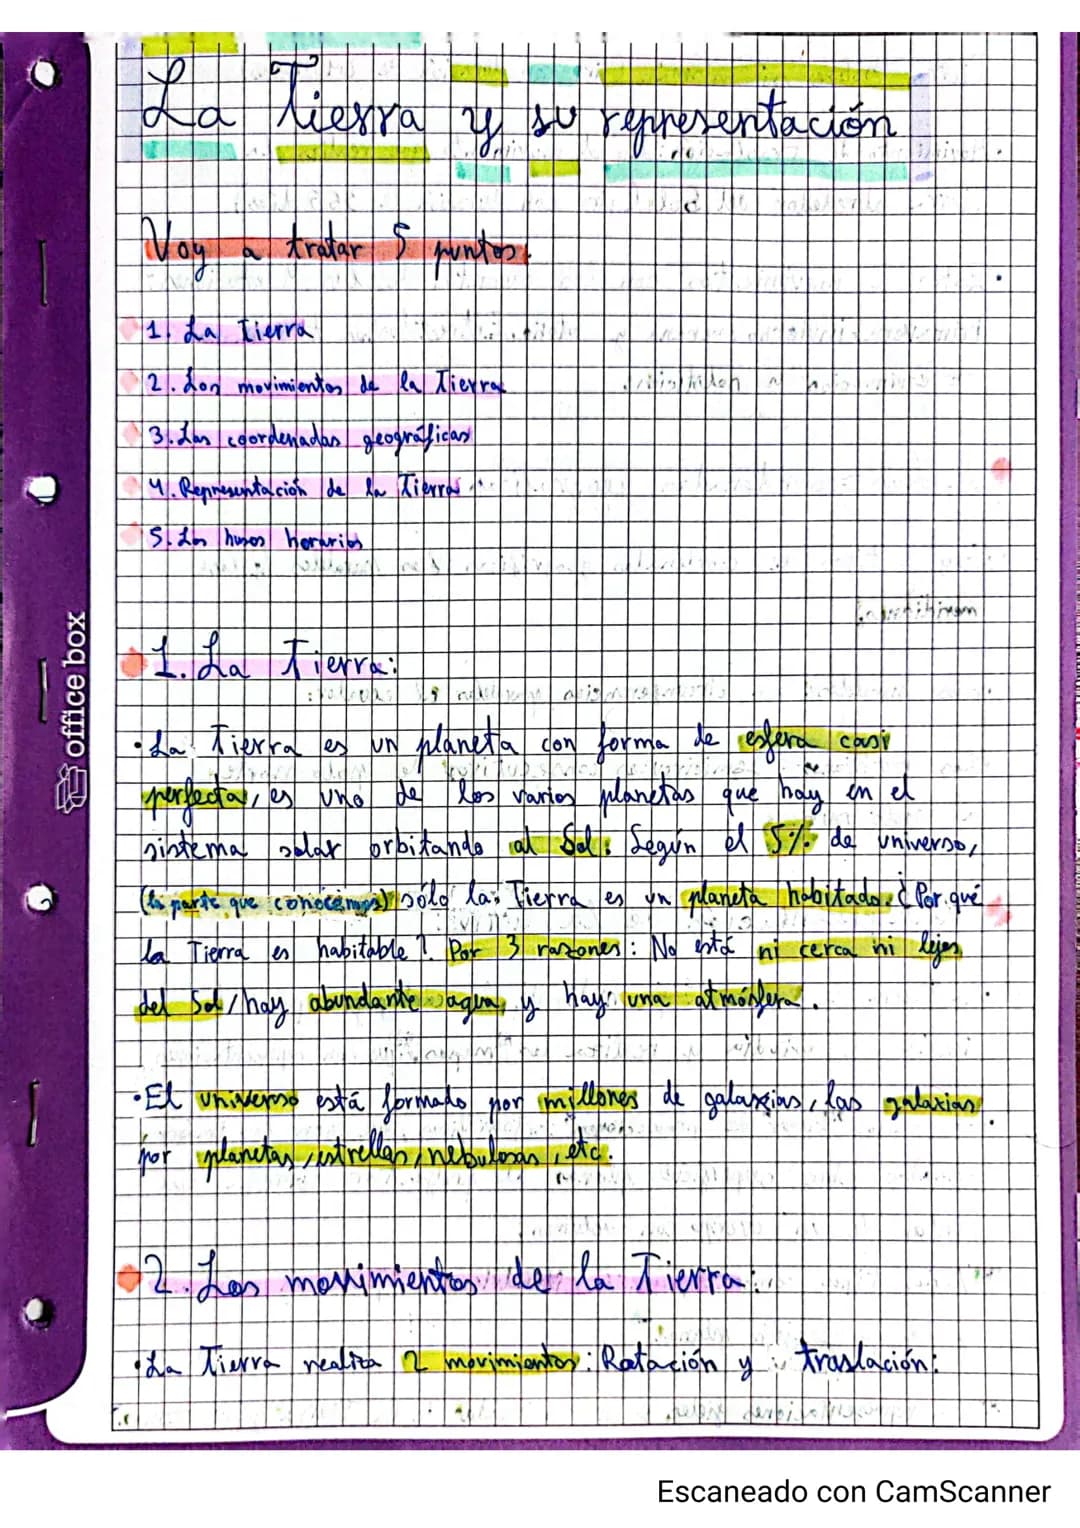 La Tierra y su representación
Voy a tratar 5 puntos.
1. La Tierra
2. Los movimientos de la Tierra
3. Las coordenadas geográficas
4. Representación de la Tierra
5. Los husos horarios
1. La Tierra:
· La Tierra es un planeta con forma de esfera casi
perfecta, es uno de los varios planetas que hay en el
sistema solar orbitando al Sol. Según el 5% de universo,
(la parte que conocemos) sólo la Tierra es un planeta habitado. ¿Por qué
la Tierra es habitable? Por 3 razones: No está ni cerca ni lejos
del Sol, hay abundante agua, y hay una atmósfera.
· El universo está formado por millones de galaxias, las galaxias
por planetas, estrellas, nebulosas, etc.
2. Los movimientos de la Tierra:
· La Tierra realiza 2 movimientos: Rotación y traslación:
office box
Escaneado con CamScanner